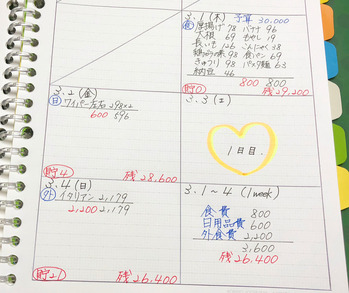 3.1 (木) 予算 30,000
食 厚揚げ 78 バナナ 96
大根 69 もやし 19
長いも 126 こんにゃく 38
鶏ささみ 98 食パン 69
きゅうり 98 パスタ麺 63
納豆 46
800 800
貯0 残29,200
3.2 (金)
日 ワイパー左右 298×2
600 596
貯4 残28,600
3.3 (土)
1日目.
3.4 (日)
外 イタリアン 2,179
2,200 2,179
貯21 残26,400
3.1~4 (1week)
食費 800
日用品費 600
外食費 2,200
3,600
残26,400